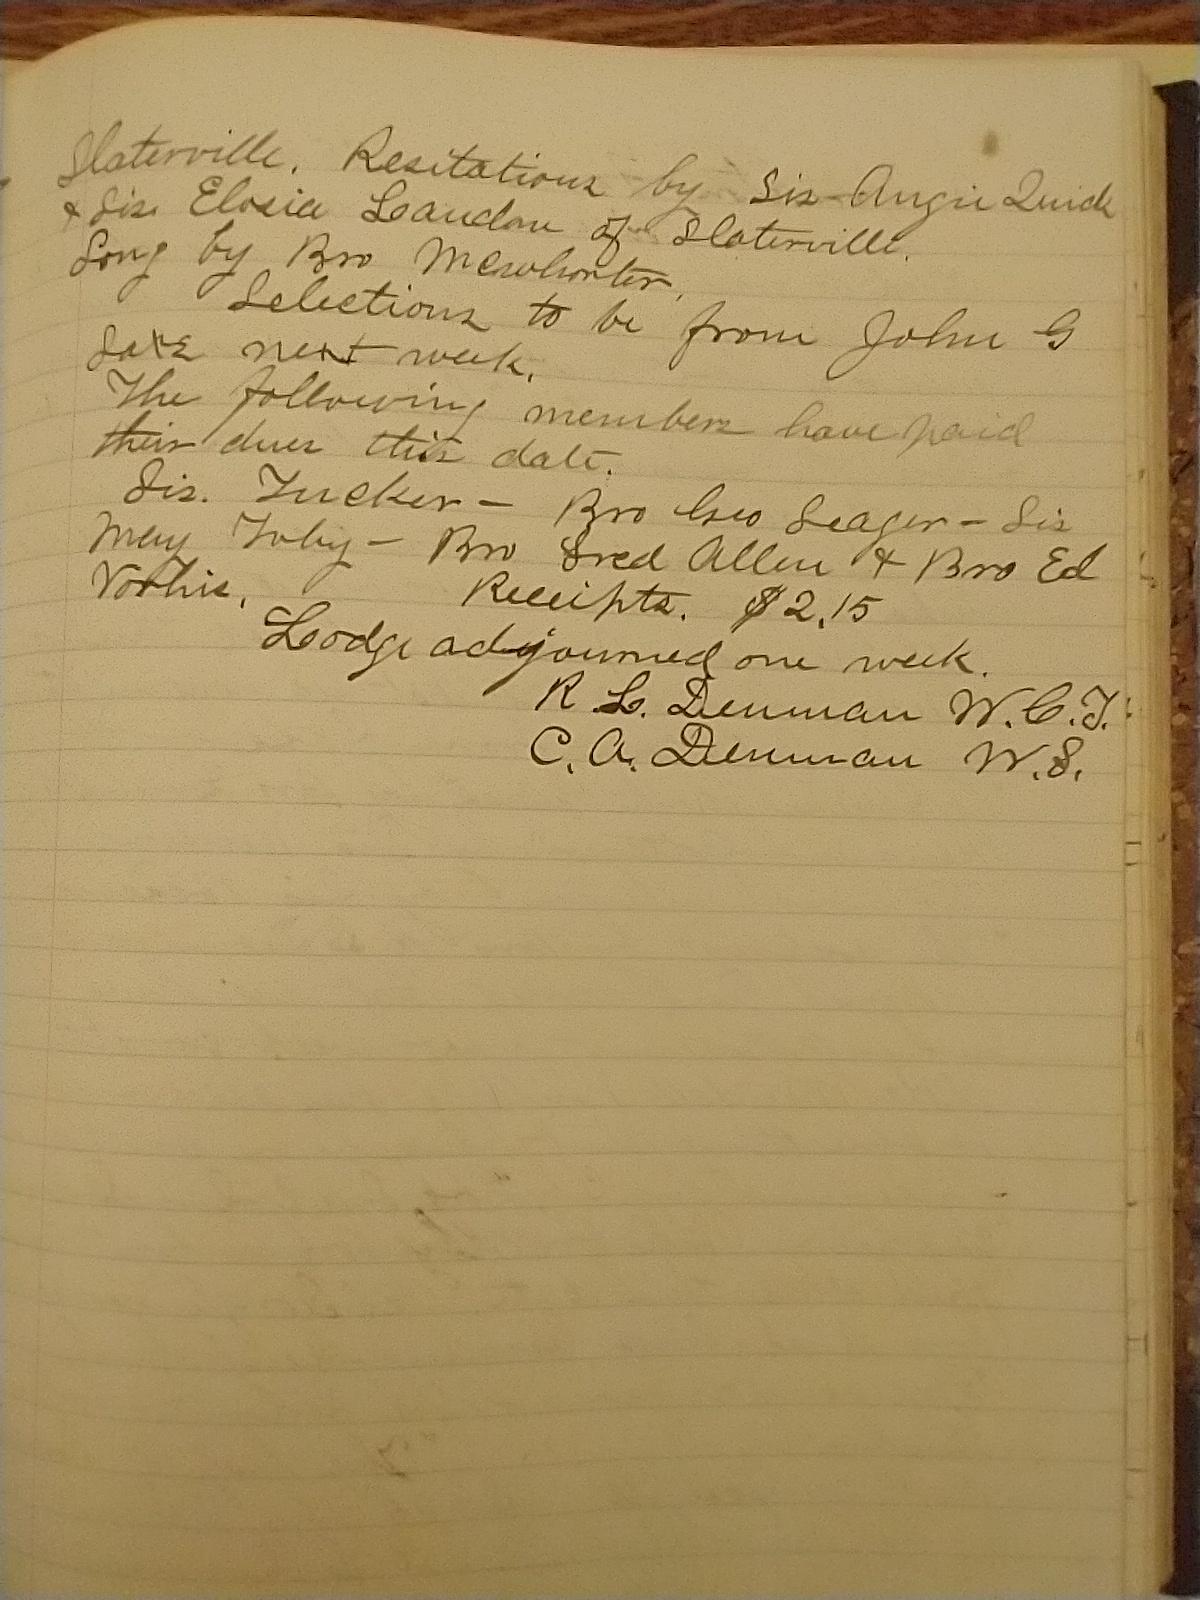 Slaterville. Resitations by Sis Angie Quick
& Sis. Elosia Landon of Slaterville.
Song by Bro Mcwhorter.
Selections to be from John G
Saxe next week.
The following members have paid
their dues this date.
Sis. Tucker - Bro Geo Seager - Sis
May Toby - Bro Fred Allen & Bro Ed
Vorhis. Receipts. $2.15
Lodge adjourned one week.
R. L. Denman W.C.T.
C. A. Denman W.S.